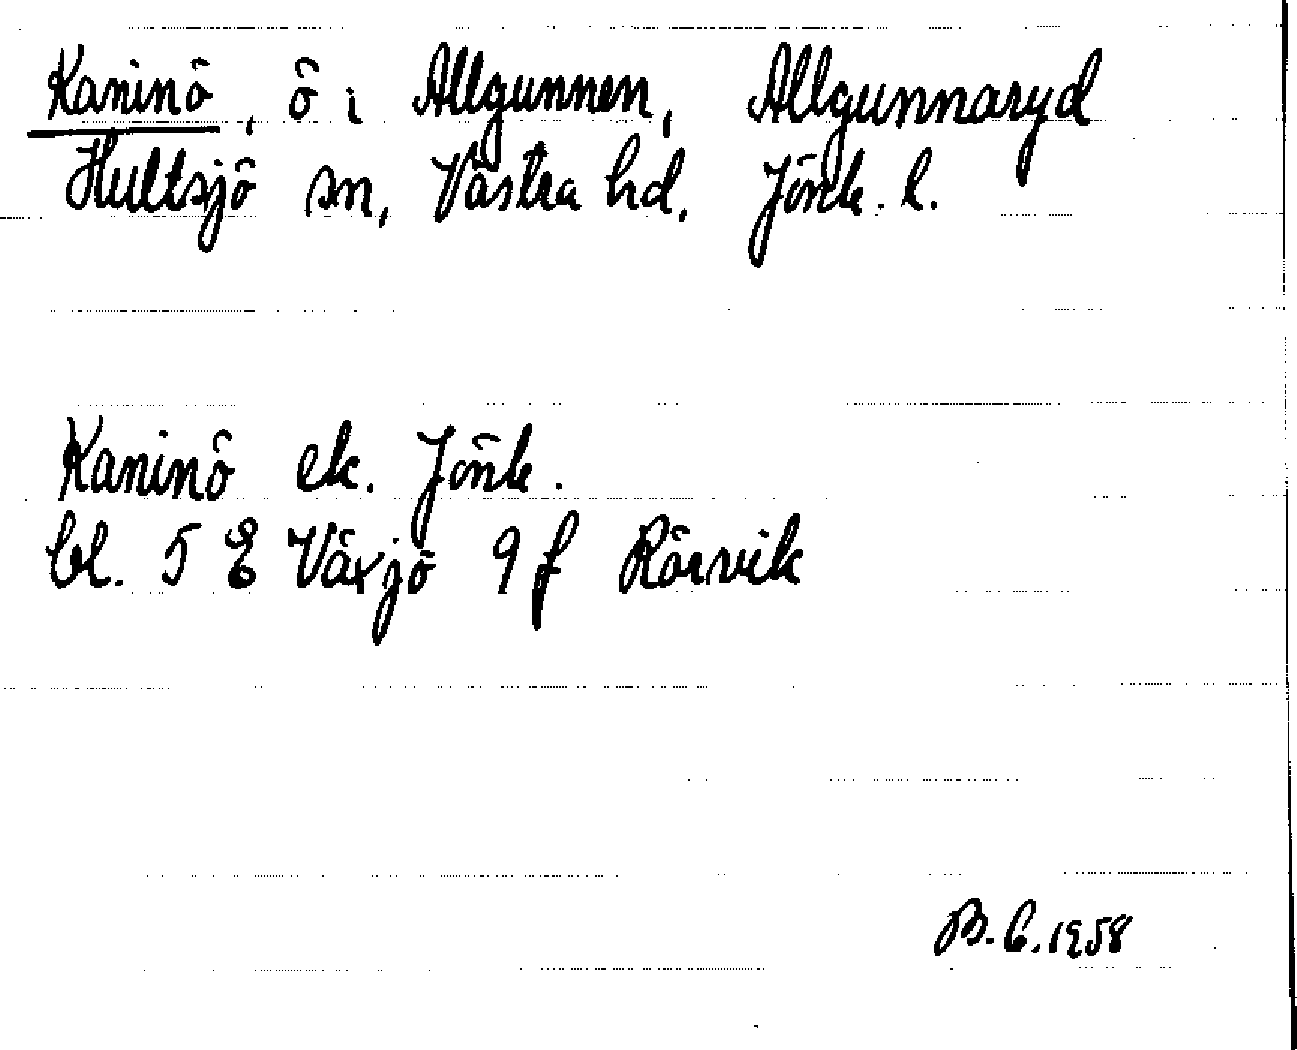 Kaninö, ö i Allgunnen, Allgunnaryd
Hultsjö sn, Västra hd, Jönk. l.
Kaninö ek. Jönk.
bl. 5 E Växjö 9 f Rörvik
B. C. 1958